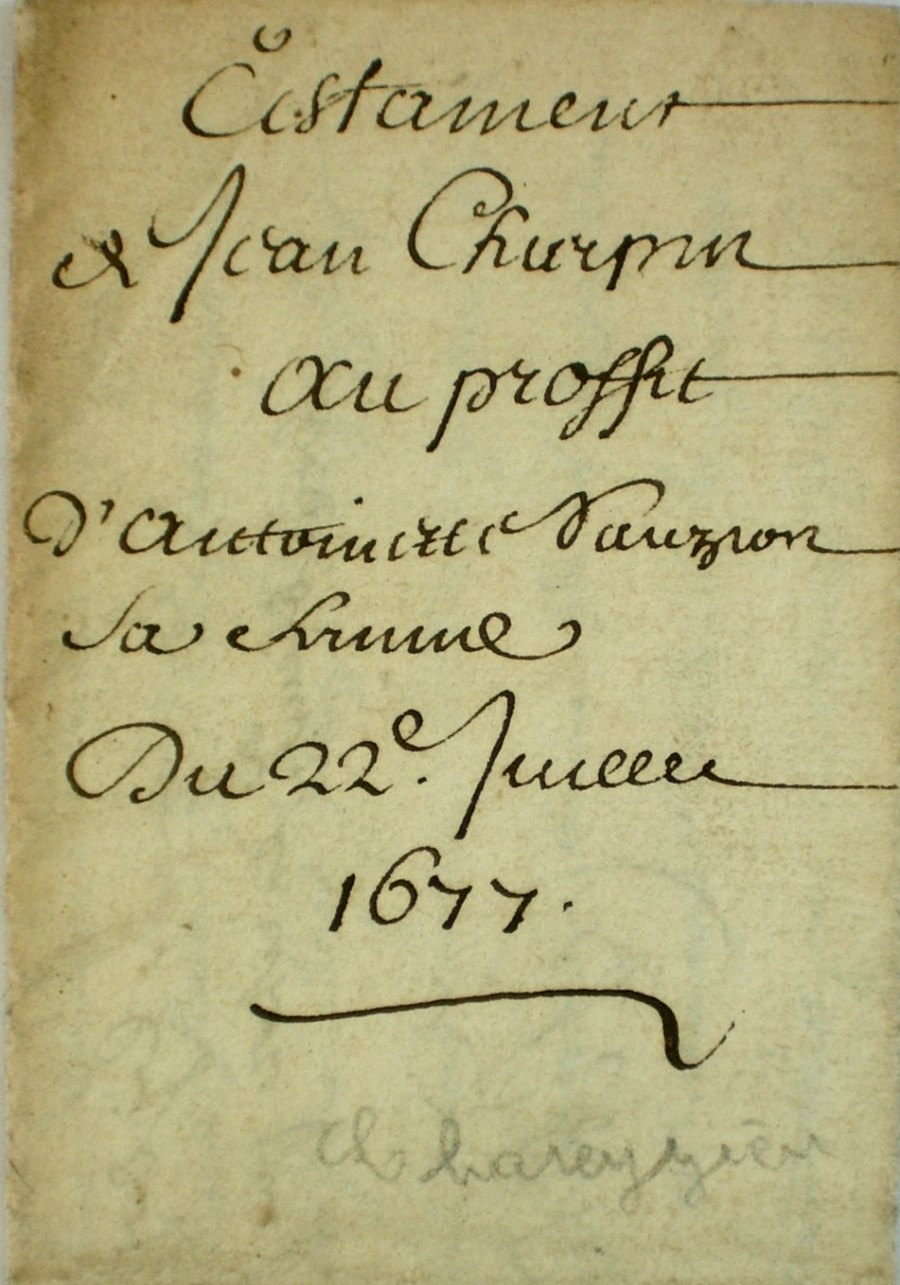 Testament
de Jean Charpin
Au proffit
D'Antoinette Vauzion
sa femme
Du 22e. Juillet
1677.